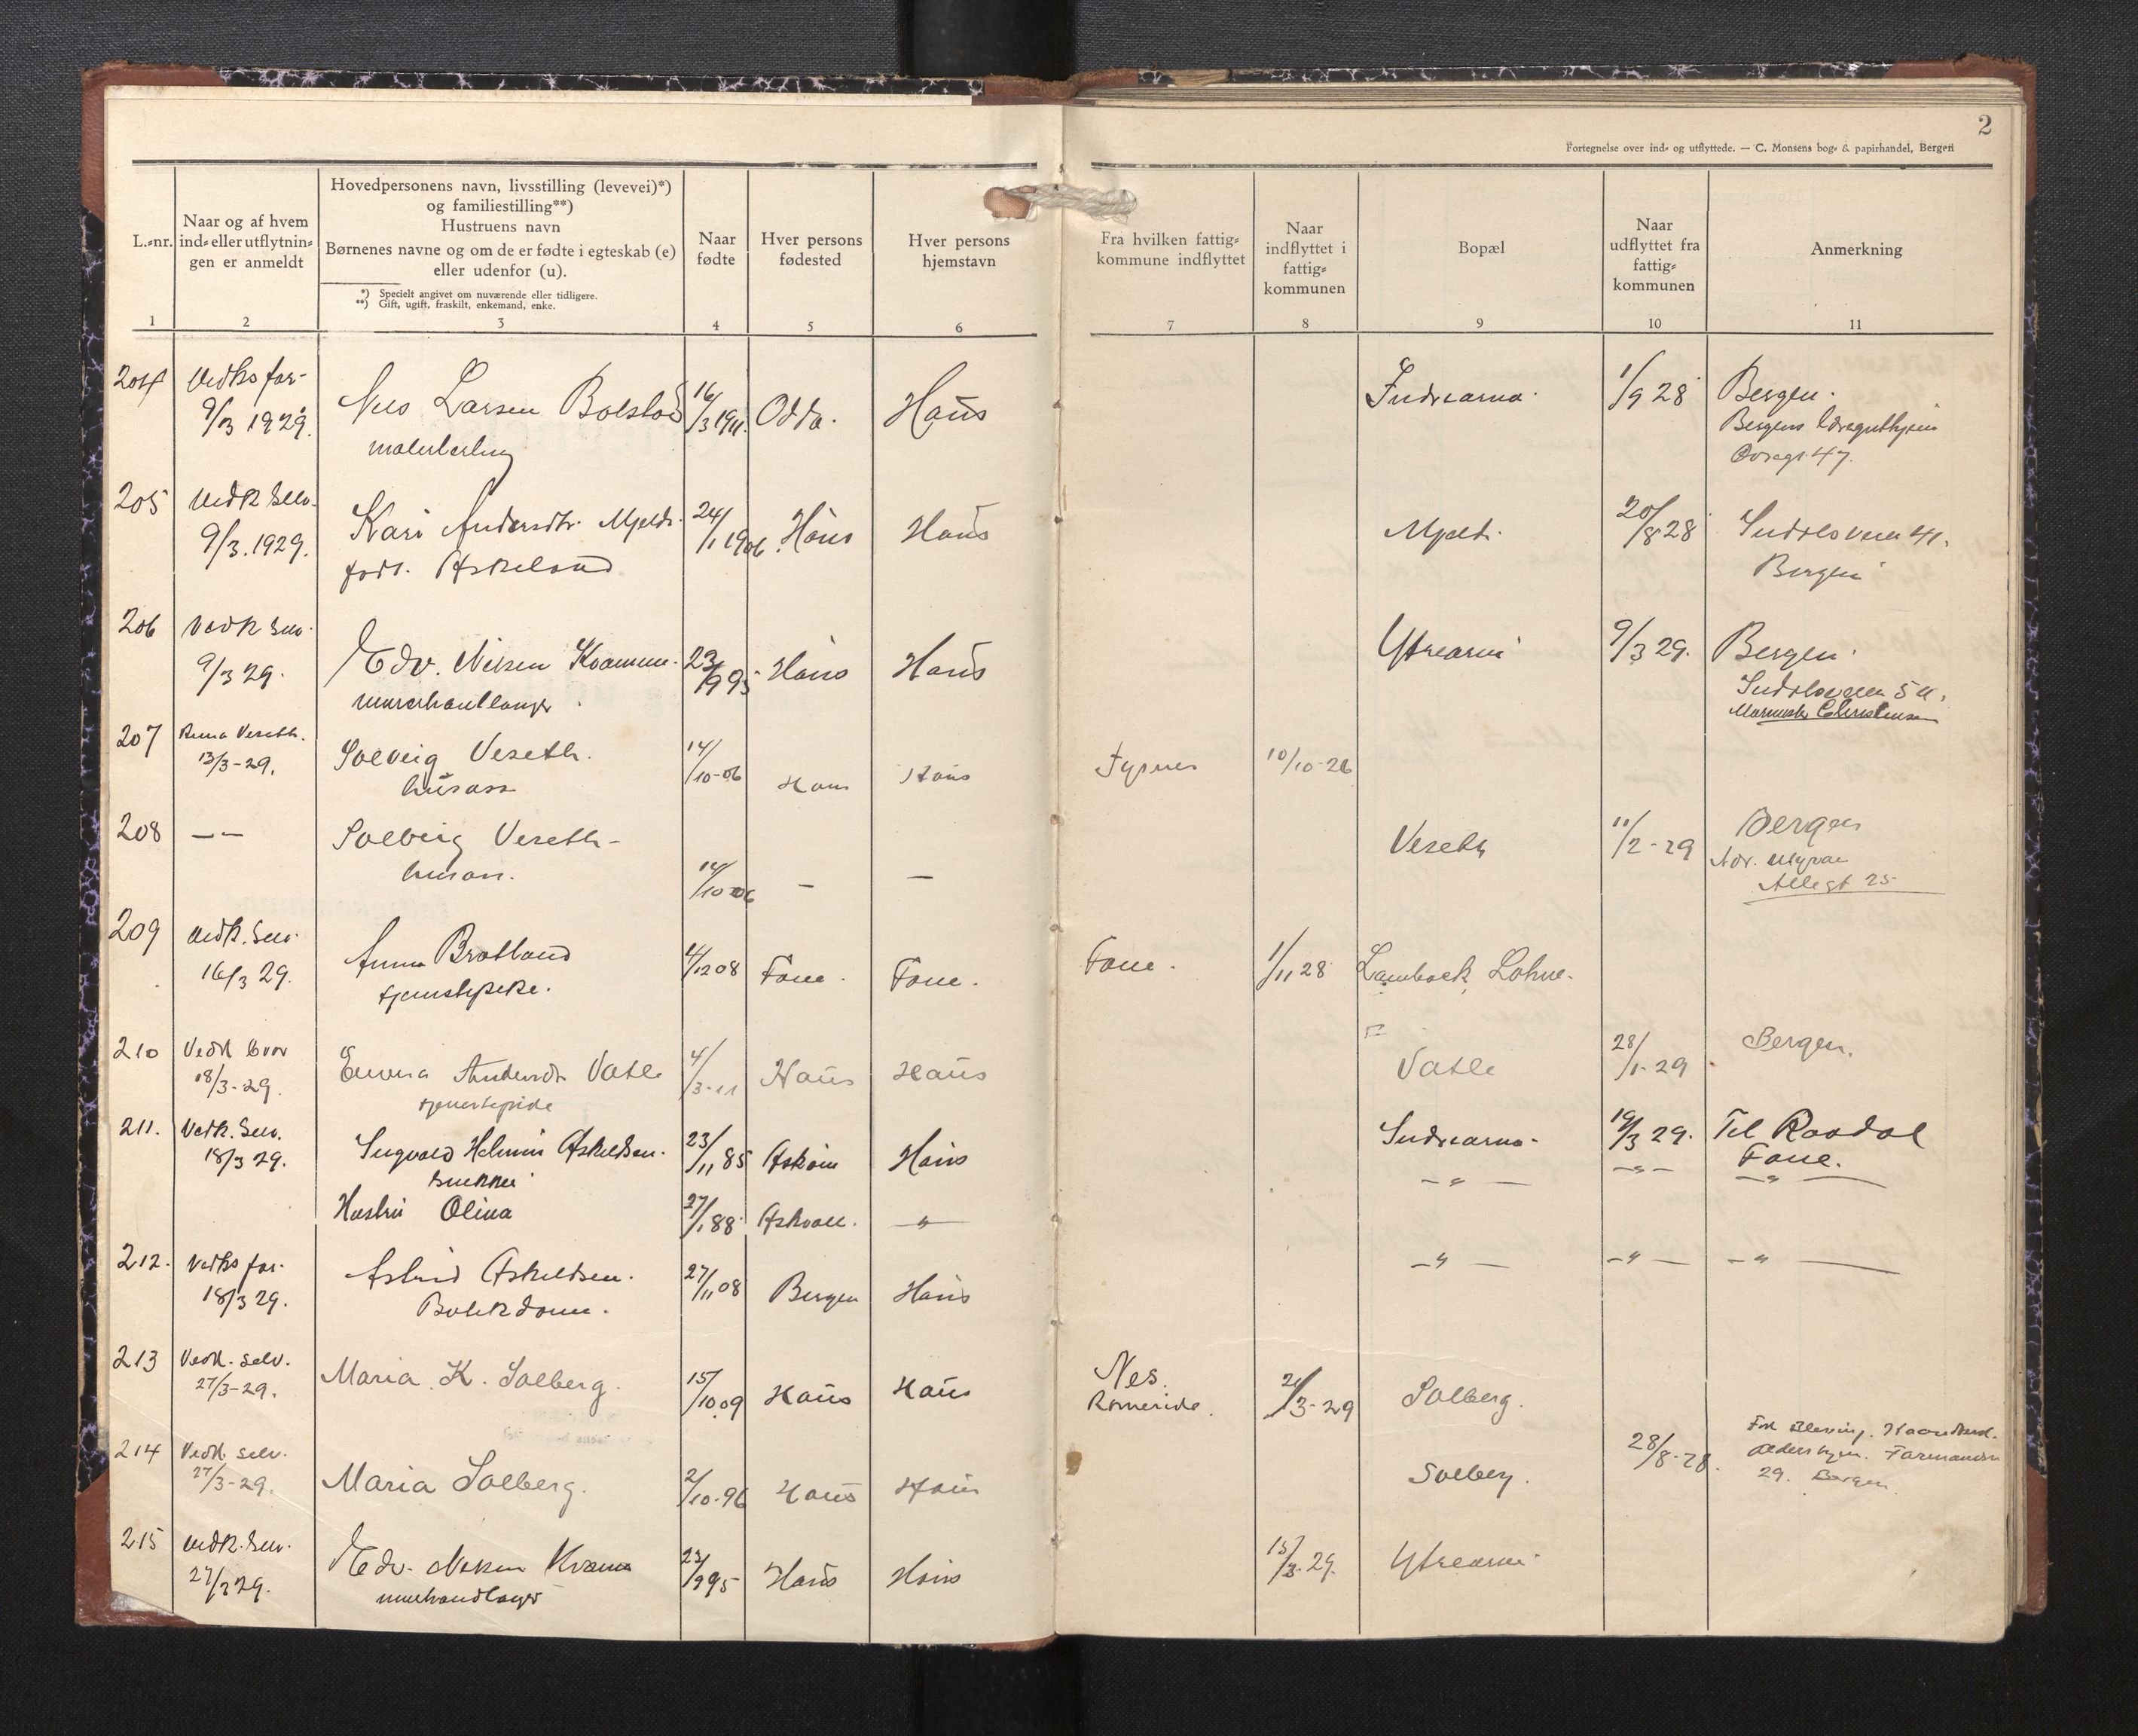 2
Fortegnelse over ind- og utflyttede. — C. Monsens bog- & papirhandel, Bergen
L.-nr.
Naar og af hvem
ind- eller utflytnin-
gen er anmeldt
Hovedpersonens navn, livsstilling (levevei)*)
og familiestilling**)
Hustruens navn
Børnenes navne og om de er fødte i egteskab (e)
eller udenfor (u).
*) Specielt angivet om nuværende eller tidligere.
**) Gift, ugift, fraskilt, enkemand, enke.
Naar
fødte
Hver persons
fødested
Hver persons
hjemstavn
Fra hvilken fattig-
kommune indflyttet
Naar
indflyttet i
fattig-
kommunen
Bopæl
Naar
udflyttet fra
fattig-
kommunen
Anmerkning
1 2 3 4 5 6 7 8 9 10 11
204 Vedks far- Nils Larsen Bolstad 16/3 1911 Odda. Haus Indrearna 1/9 28 Bergen.
9/3 1929. malerlærling Bergens
47.
205 Vedk selv. Kari Andersdtr. Mjeld. 24/1 1906. Haus Haus Mjeld. 20/8 28 41.
9/3.1929. født. Askeland Bergen
206 Vedk selv. Edv. Nilsen Kvamme. 23/9 95 Haus Haus Ytrearna 9/3 29. Bergen.
9/3 29. murerhantlanger
Christensen
207 Anna Veseth. Solveig Veseth. 14/10-06 Haus Haus Fysnes 10/10-26
13/3-29. husass
208 — — Solveig Veseth- 14/10 06 — — Veseth 11/2-29 Bergen
husass. Adr. Myrae
Allegt 25
209 Vedk. selv. Anna Bratland 4/12 08 Fane. Fane. Fane. 1/11 28 Lambæk, Lohne.
16/3 29. tjenestepike.
210 Vedk bror Emma Andersdtr Vatle 4/3-11 Haus Haus Vatle 28/1-29 Bergen.
18/3-29. tjenestepike
211. Vedk. selv. Helmin Askeldsen. 23/11 85 Askøin Haus Indrearna- 19/3 29. Til Raadal
18/3 29. snekker Fane.
Hustru Olina 27/1 88 Askøen. — " — — " — — " — — " —
212. Vedks far. Astrid Askeldsen. 27/11 08 Bergen Haus — " — — " — — " —
18/3 29. Butikdame.
213 Vedk. selv. Maria K. Solberg. 15/10 09 Haus Haus Nes. 21/3-29 Solberg.
27/3-29. Romerike.
214 Vedk selv. Maria Solberg. 2/10-96 Haus Haus Solberg. 28/8-28.
27/3-29. 29. Bergen.
215 Vedk. selv. Edv. Nilsen Kvamme 23/9 95 Haus Haus 15/3-29. Ytrearna
27/3 29. murhandlager